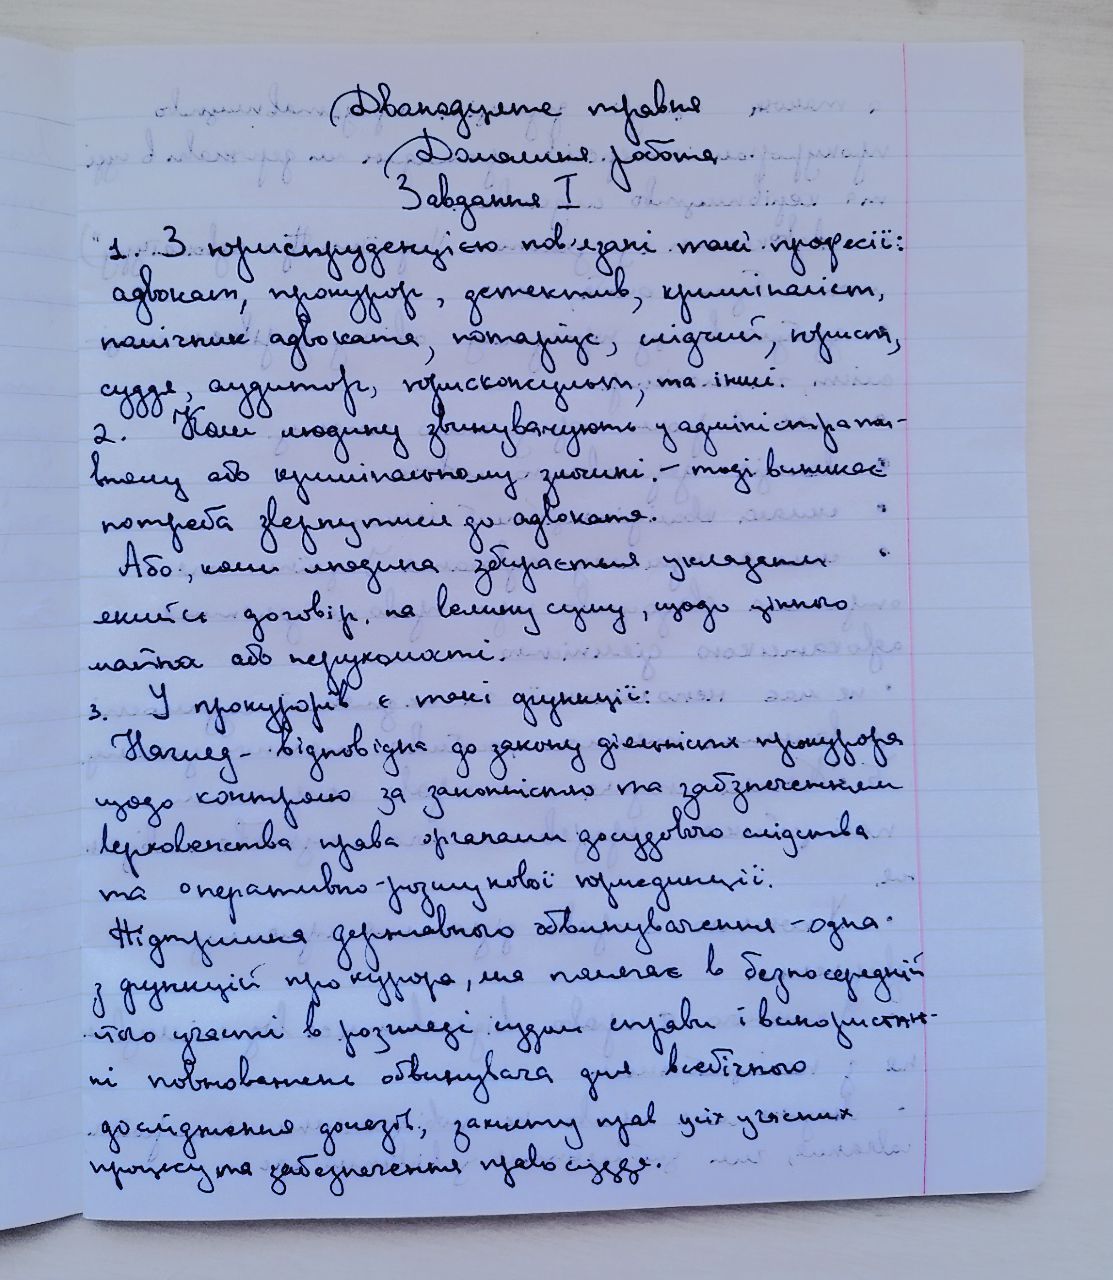 Дванадцяте травня
Домашня робота
Завдання I
1. З юриспруденцією пов'язані такі професії:
адвокат, прокурор, детектив, криміналіст,
помічник адвоката, нотаріус, слідчий, юрист,
суддя, аудитор, юрисконсульт, та інші.
2. Коли людину звинувачують у адміністрати-
вному або кримінальному злочині. - тоді виникає
потреба звернутися до адвоката.
Або, коли людина збирається укладати
якийсь договір, на велику суму, щодо цінного
майна або нерухомості.
3. У прокурорів є такі функції:
Нагляд - відповідна до закону діяльність прокурора
щодо контролю за законністю та забезпеченням
верховенства права органами досудового слідства
та оперативно-розшукової юрисдикції.
Підтримка державного обвинувачення - одна
з функцій прокурора, яка полягає в безпосередній
його участі в розгляді судом справи і використан-
ні повноважень обвинувача для всебічного
дослідження доказів, захисту прав усіх учасних
процесу та забезпечення правосуддя.